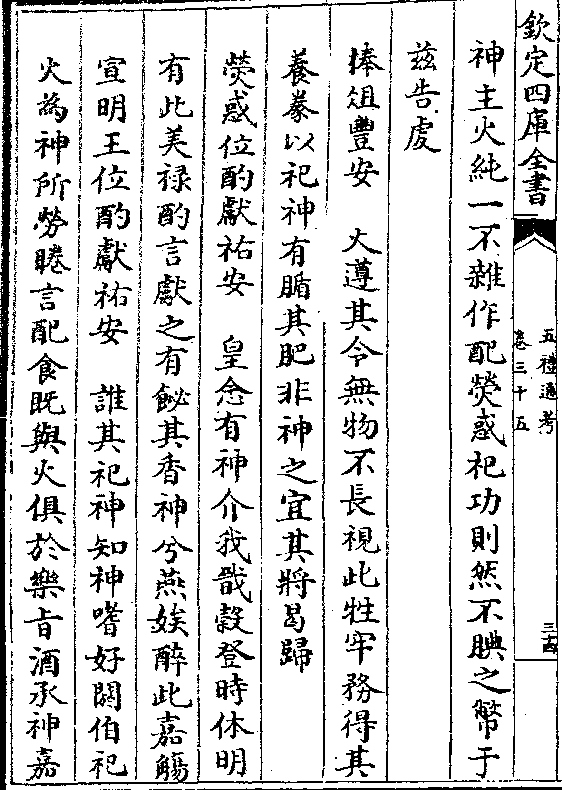 欽定四庫全書
五禮通考
卷三十五
神主火純一不雜作配熒惑祀功則然不腆之幣于
兹告虔
捧俎豐安　火遵其令無物不長視此牲牢務得其
養豢以祀神有腯其肥非神之宜其將曷歸
熒惑位酌獻祐安　皇念有神介我戩穀登時休明
有此美禄酌言獻之有飶其香神兮燕娭醉此嘉觴
宣明王位酌獻祐安　誰其祀神知神嗜好閼伯祀
火為神所勞睠言配食既與火俱於樂旨酒承神嘉